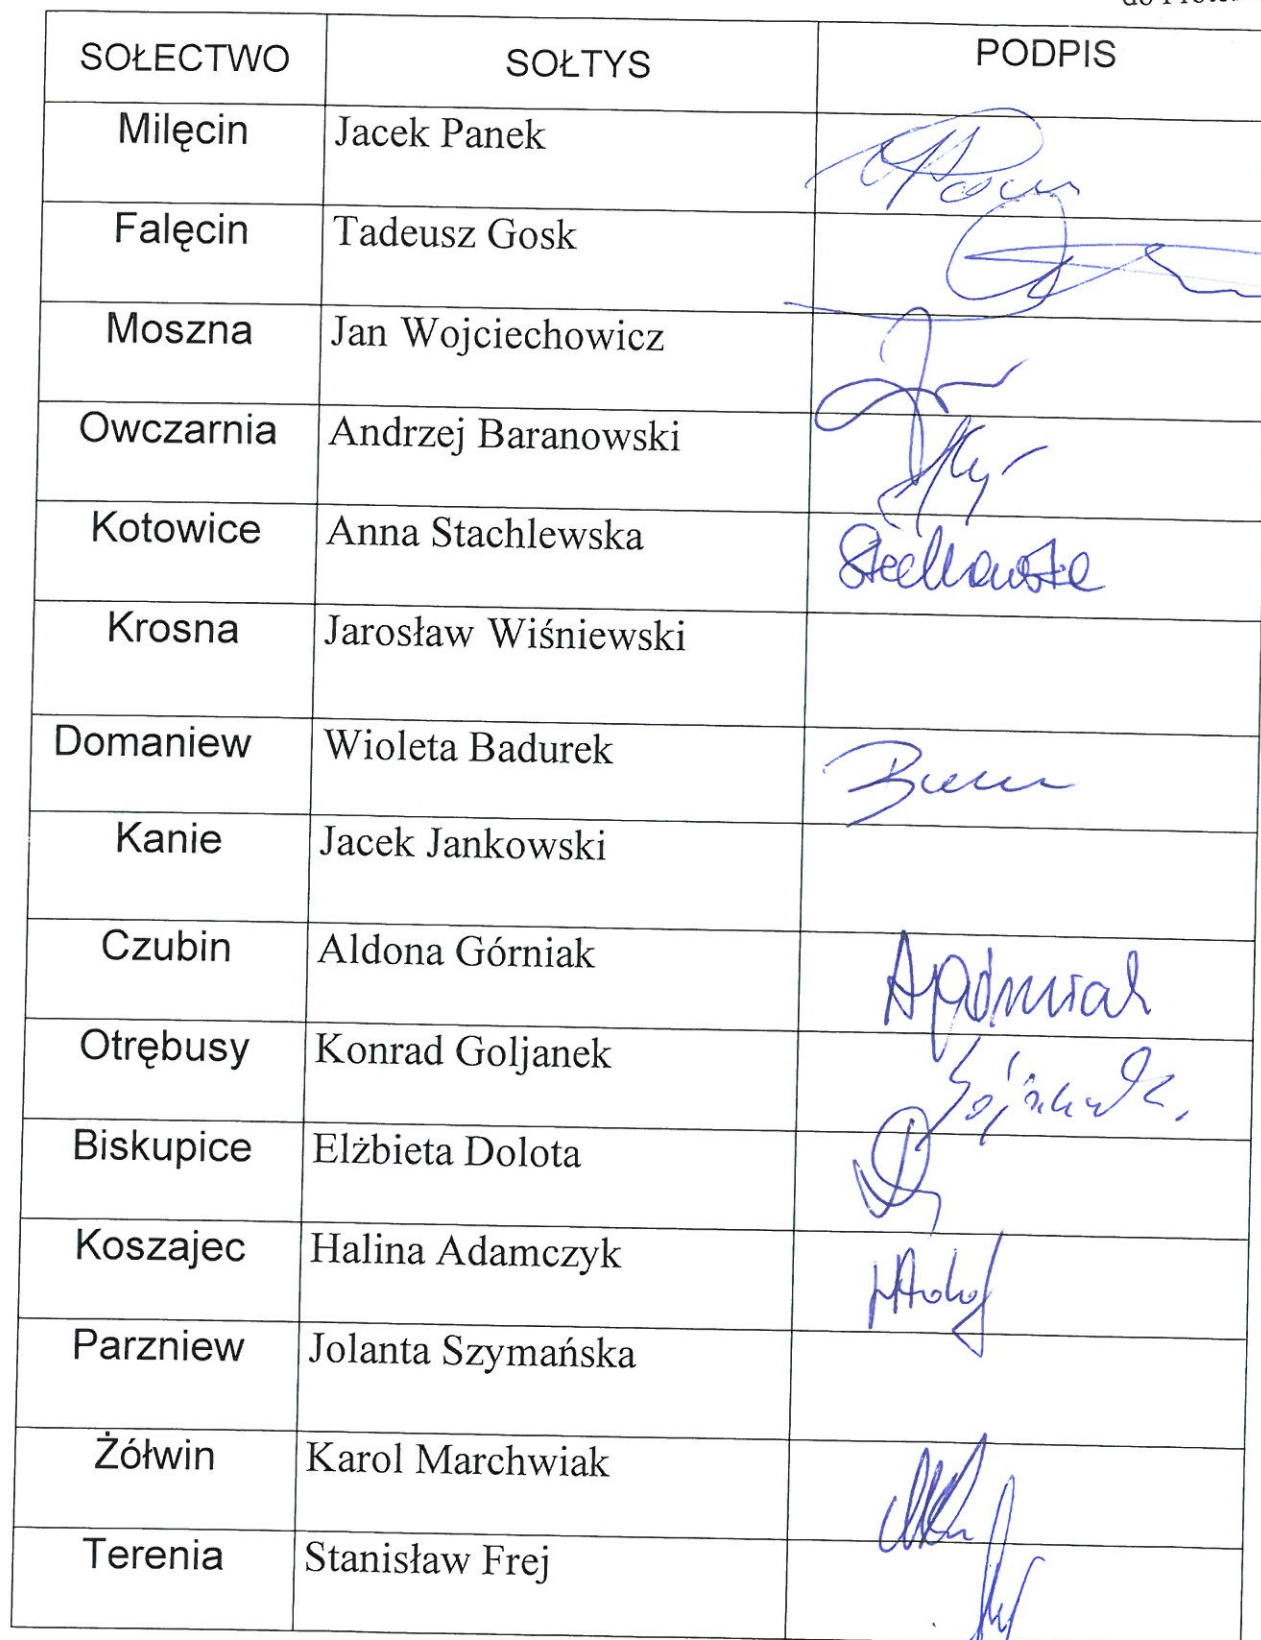 SOŁECTWO SOŁTYS PODPIS
Milęcin Jacek Panek
Falęcin Tadeusz Gosk
Moszna Jan Wojciechowicz
Owczarnia Andrzej Baranowski
Kotowice Anna Stachlewska
Krosna Jarosław Wiśniewski
Domaniew Wioleta Badurek
Kanie Jacek Jankowski
Czubin Aldona Górniak
Otrębusy Konrad Goljanek
Biskupice Elżbieta Dolota
Koszajec Halina Adamczyk
Parzniew Jolanta Szymańska
Żółwin Karol Marchwiak
Terenia Stanisław Frej